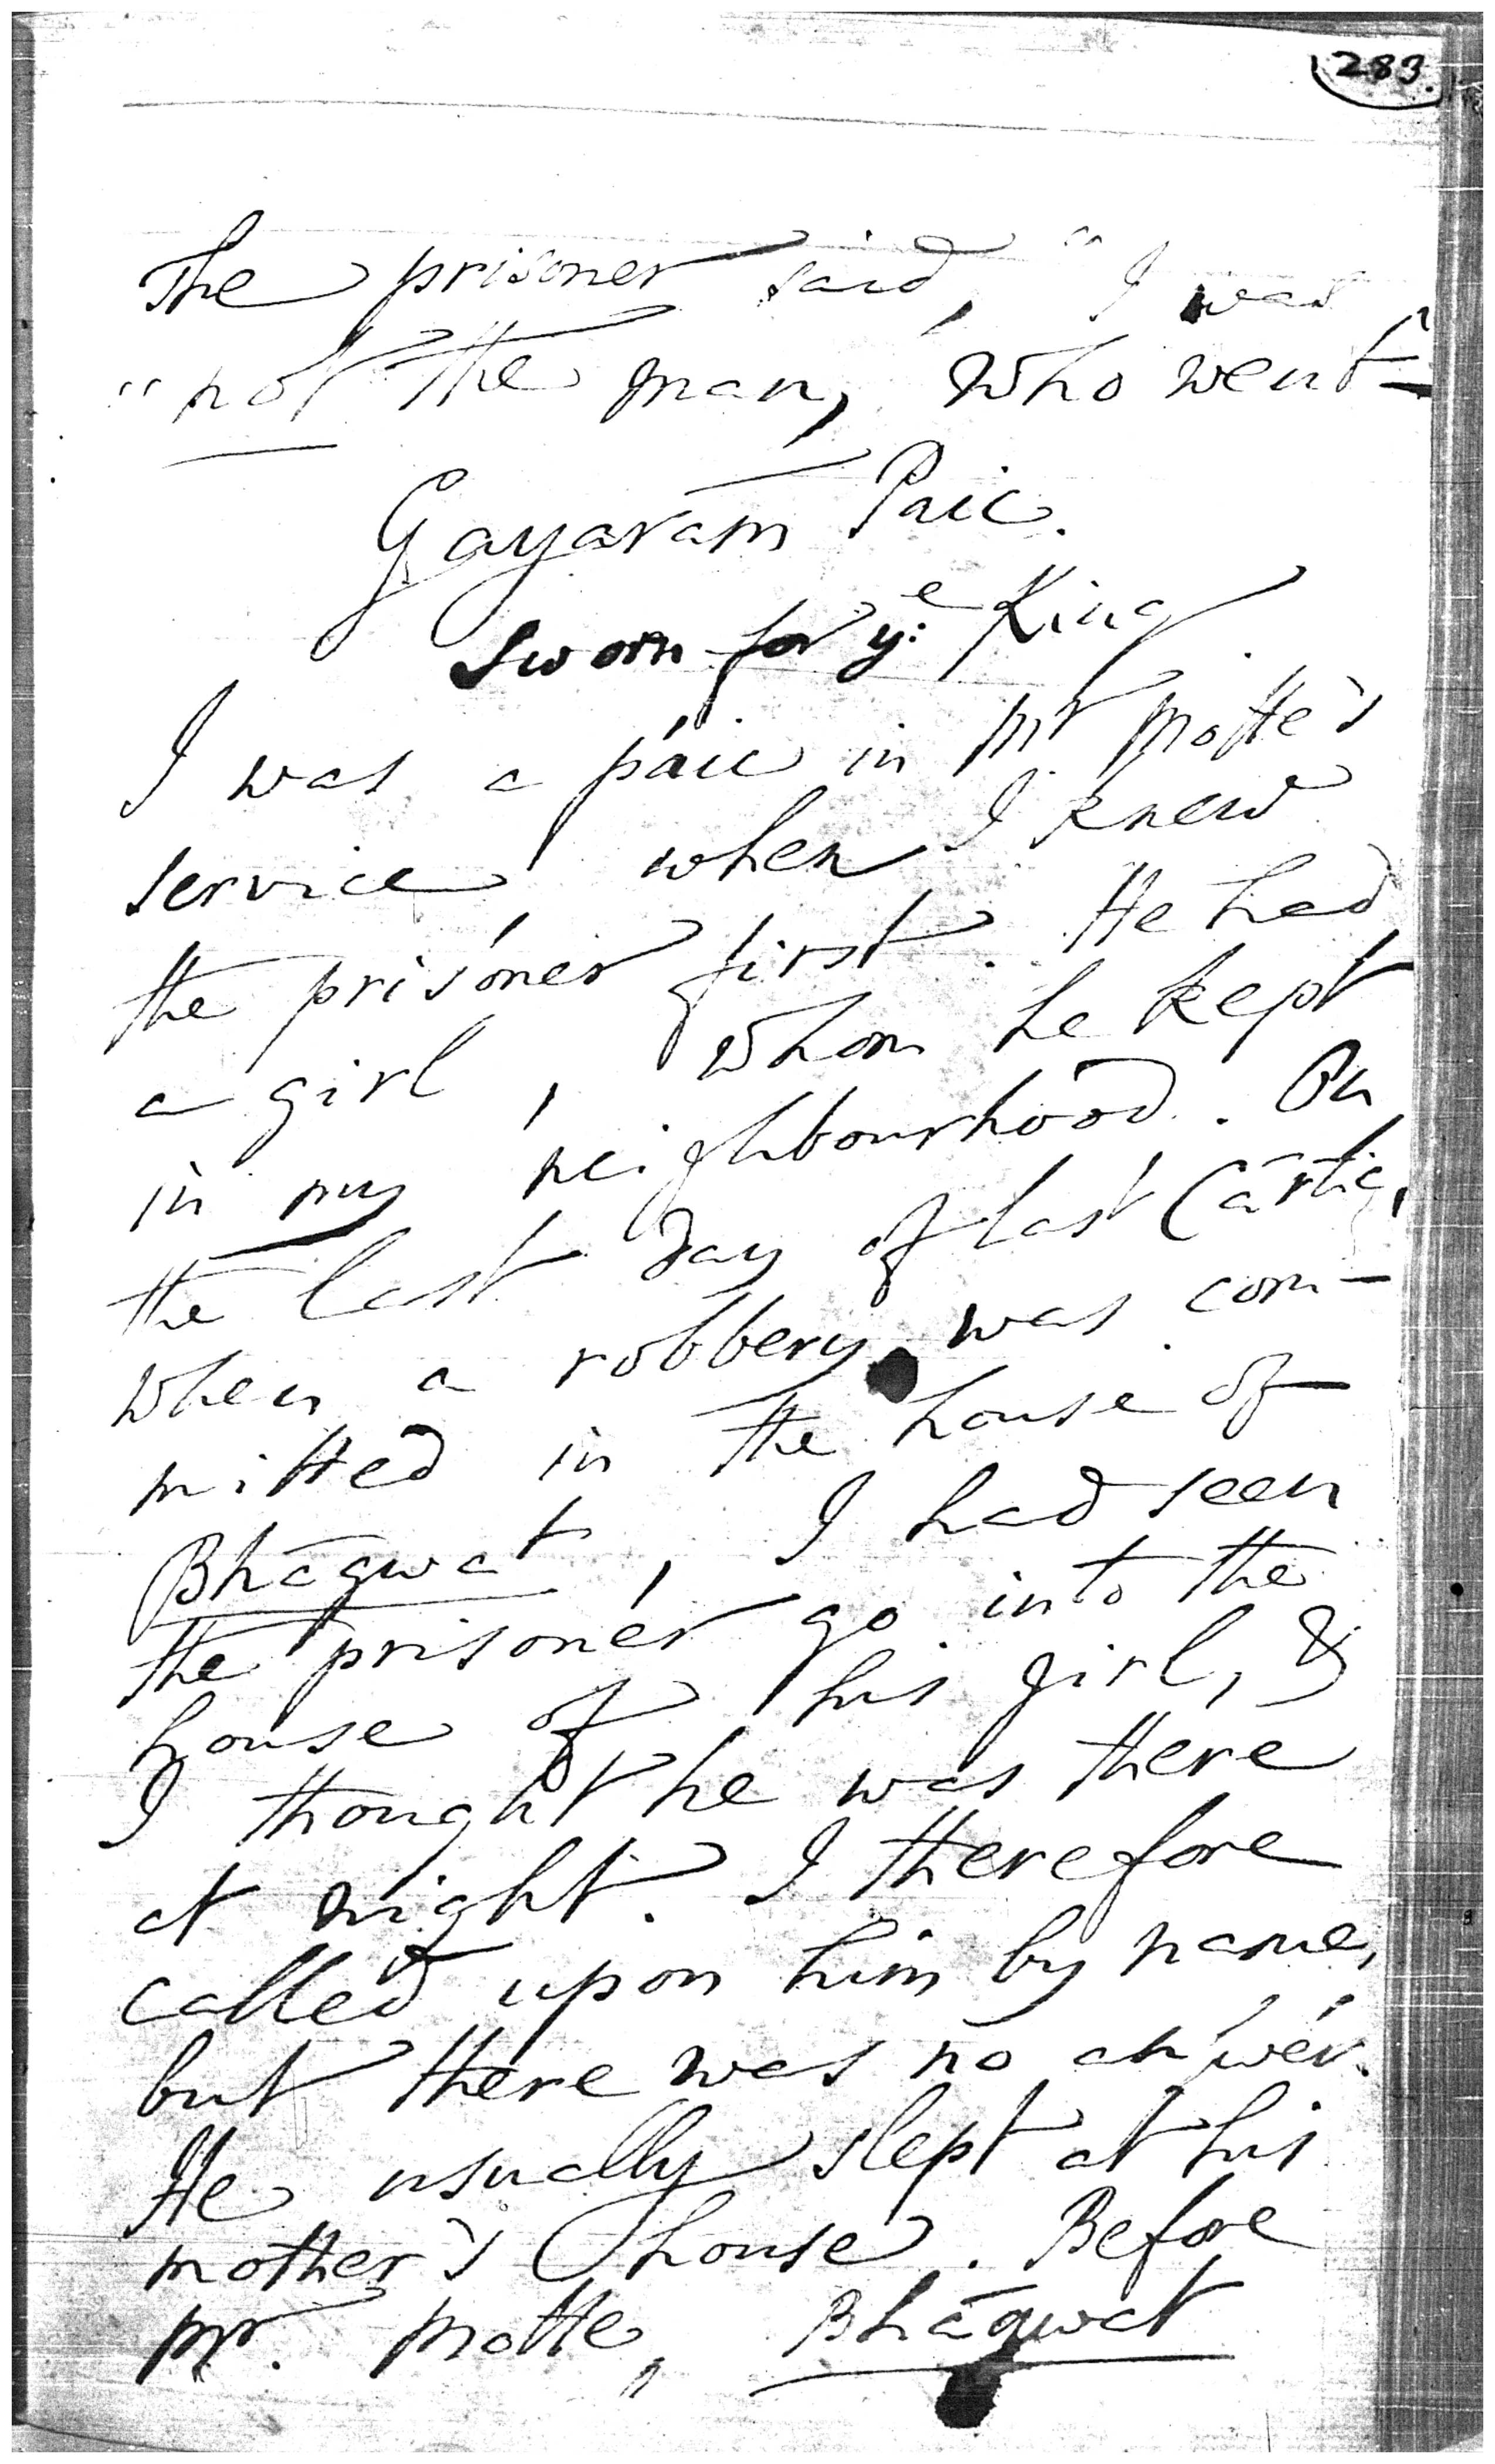 283.
The prisoner said, "I was
"not the man, who went—"
Gayaram Paic.
sworn for yᵉ: King
I was a paic in Mr Motte's
service when I knew
the prisoner first. He had
a girl, whom he kept
in my neighbourhood. On
the last day of last Cārtic,
when a robbery was com-
mitted in the house of
Bhāgwat, I had seen
the prisoner go into the
house of his girl, &
I thought he was there
at night. I therefore
called upon him by name,
but there was no answer.
He usually slept at his
mother's house. Before
Mr. Motte, Bhāgwat